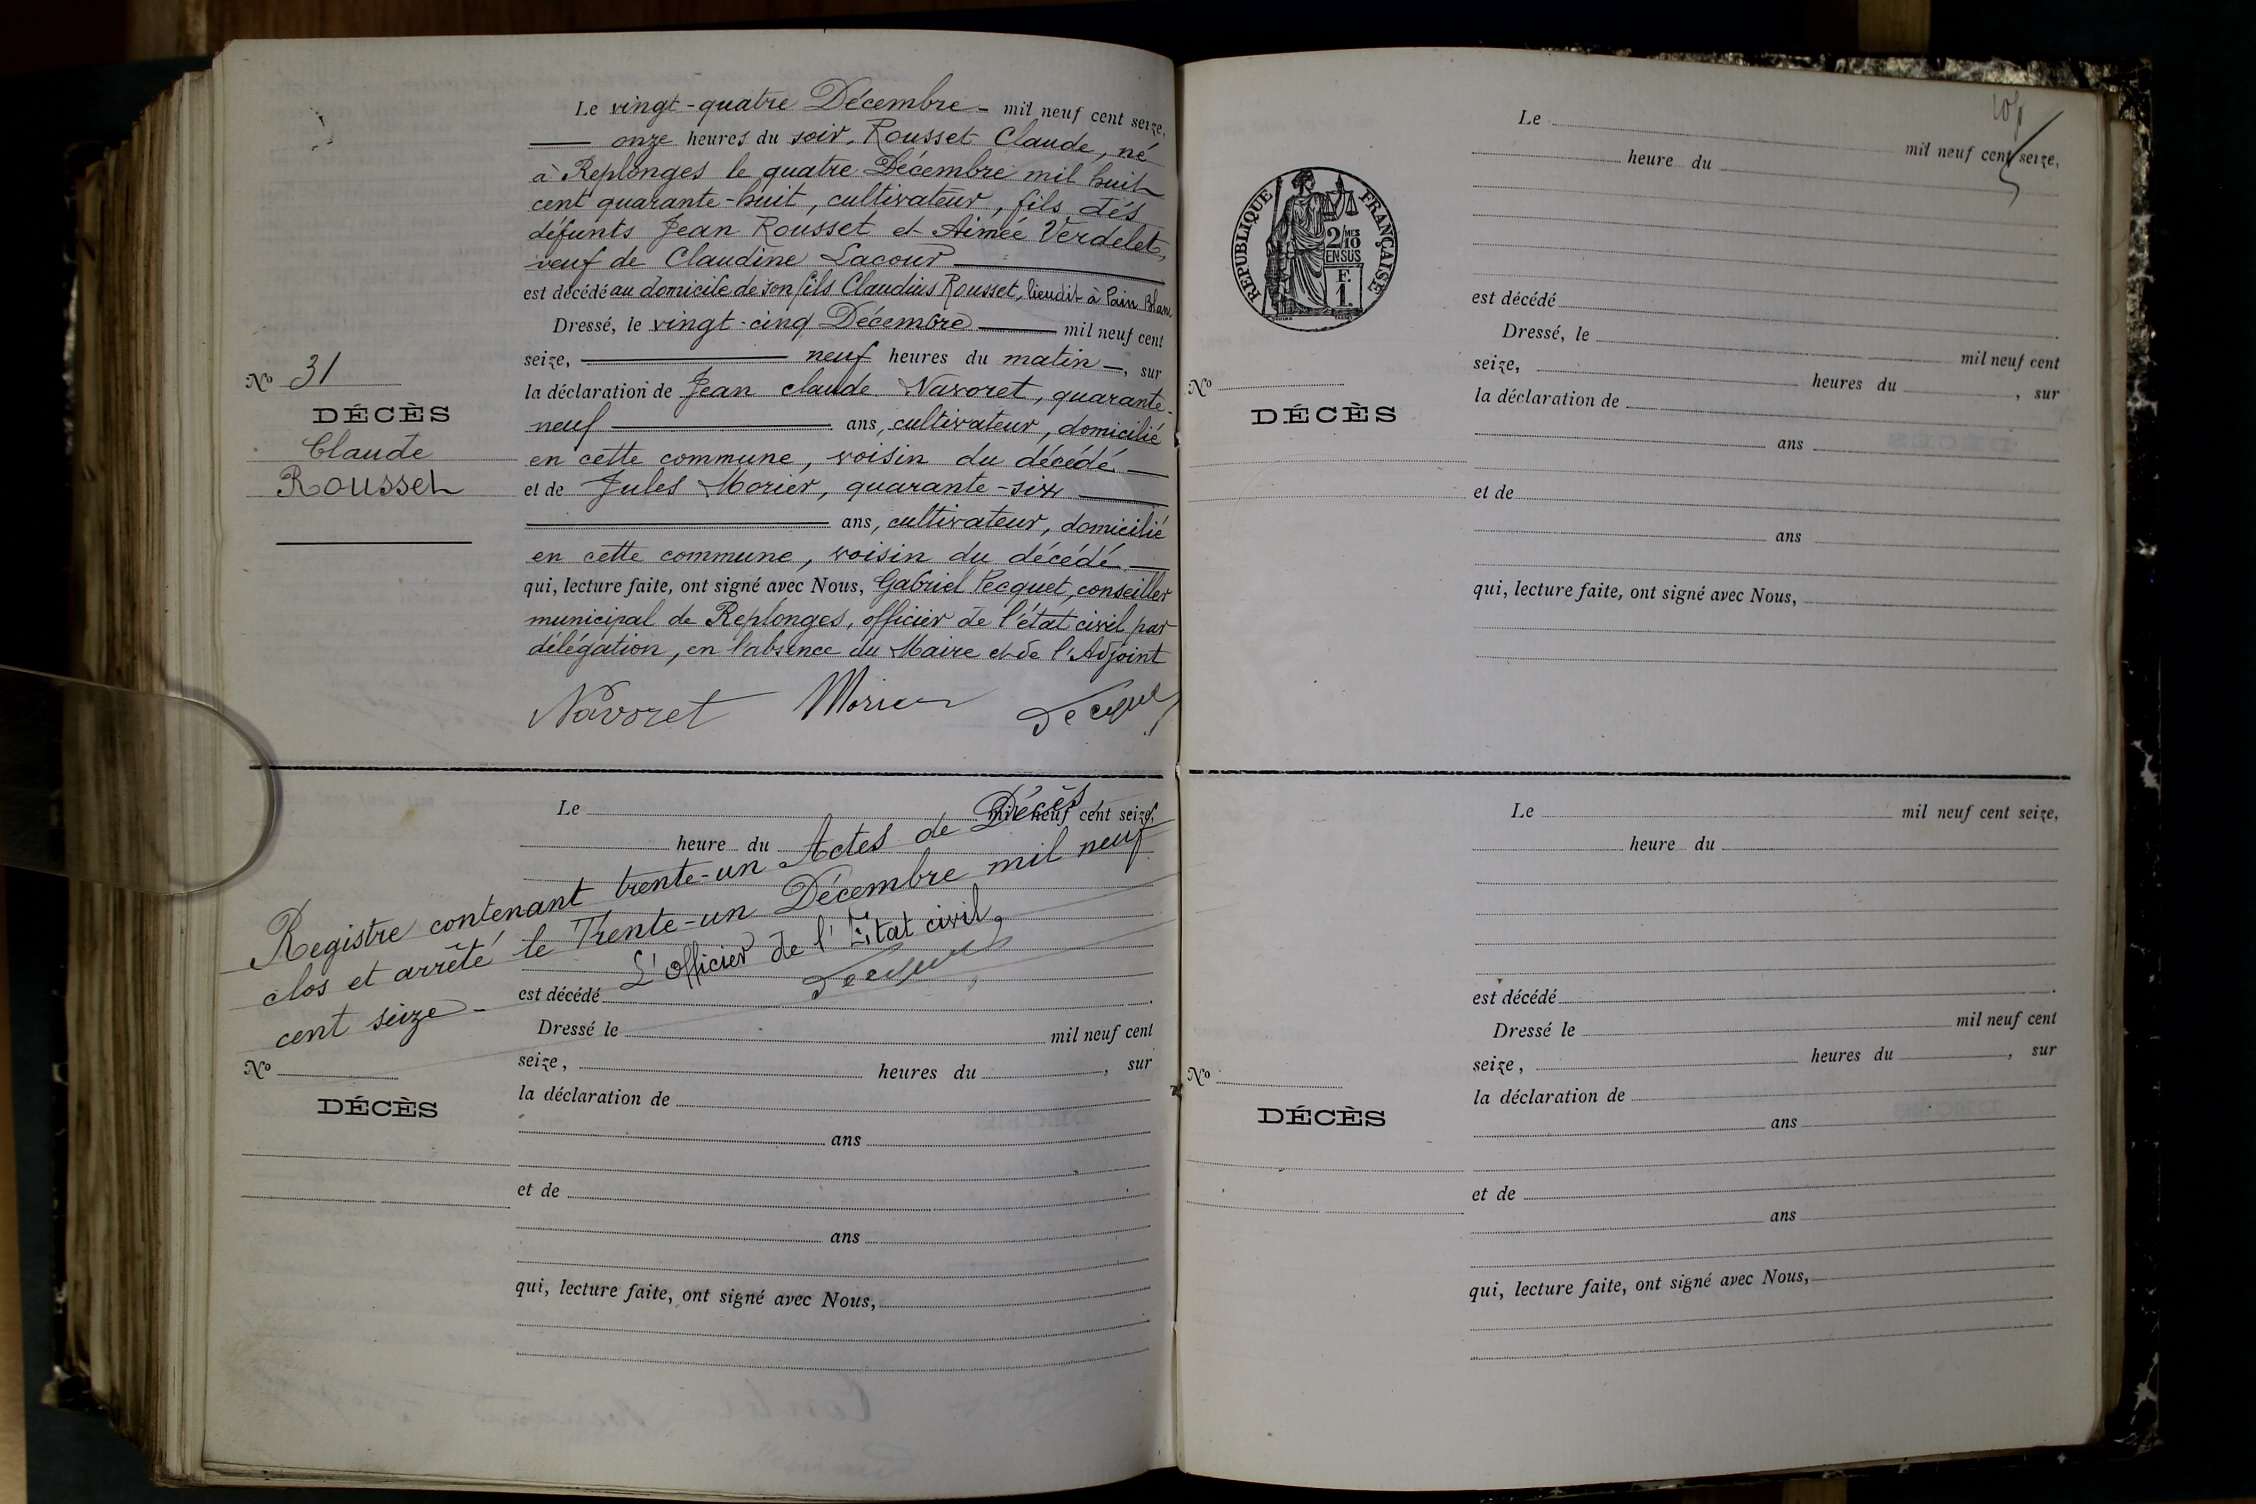 Le vingt-quatre Décembre - mil neuf cent seize,
onze heures du soir, Rousset Claude, né
à Replonges le quatre Décembre mil huit
cent quarante-huit, cultivateur, fils des
défunts Jean Rousset et Aimée Verdelet,
veuf de Claudine Lacour
est décédé au domicile de son fils Claudius Rousset, lieudit à Pain Blanc
Dressé, le vingt-cinq Décembre mil neuf cent
seize, neuf heures du matin, sur
la déclaration de Jean Claude Navoret, quarante-
neuf ans, cultivateur, domicilié
en cette commune, voisin du décédé
et de Jules Morier, quarante-six
ans, cultivateur, domicilié
en cette commune, voisin du décédé
qui, lecture faite, ont signé avec Nous, Gabriel Pecquet, conseiller
municipal de Replonges, officier de l'état civil par
délégation, en l'absence du Maire et de l'Adjoint
Navoret Morier
No 31
DÉCÈS
Claude
Rousset
Le mil neuf cent seize,
heure du
Registre contenant trente-un Actes de Décès
clos et arrêté le Trente-un Décembre mil neuf
cent seize -
L'Officier de l'Etat civil,
est décédé
Dressé le mil neuf cent
seize, heures du , sur
la déclaration de
ans
et de
ans
qui, lecture faite, ont signé avec Nous,
No
DÉCÈS
RÉPUBLIQUE FRANÇAISE
2/MES
10
EN SUS
F.
1.
Le mil neuf cent seize,
heure du
est décédé
Dressé, le mil neuf cent
seize, heures du , sur
la déclaration de
ans
et de
ans
qui, lecture faite, ont signé avec Nous,
No
DÉCÈS
Le mil neuf cent seize,
heure du
est décédé
Dressé le mil neuf cent
seize, heures du , sur
la déclaration de
ans
et de
ans
qui, lecture faite, ont signé avec Nous,
No
DÉCÈS